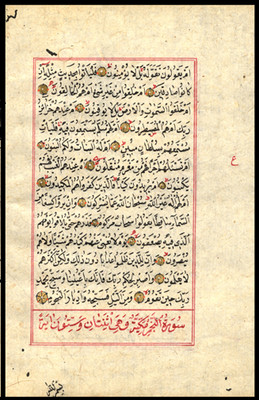 ام يقولون تقوله بل لا يؤمنون فلياتوا بحديث مثله ان
كانوا صادقين ام خلقوا من غير شيء ام هم الخالقون
ام خلقوا السموات والارض بل لا يوقنون ام عندهم خزائن
ربك ام هم المصيطرون ام لهم سلم يستمعون فيه فليات
مستمعهم بسلطان مبين ام له البنات ولكم البنون
ام تسئلهم اجرا فهم من مغرم مثقلون ام عندهم الغيب فهم
يكتبون ام يريدون كيدا فالذين كفروا هم المكيدون
ام لهم اله غير الله سبحان الله عما يشركون وان يروا كسفا من
السماء ساقطا يقولوا سحاب مركوم فذرهم حتى يلاقوا يومهم
الذي فيه يصعقون يوم لا يغني عنهم كيدهم شيئا ولا هم
ينصرون وان للذين ظلموا عذابا دون ذلك ولكن اكثرهم
لا يعلمون واصبر لحكم ربك فانك باعيننا وسبح بحمد
ربك حين تقوم ومن الليل فسبحه وادبار النجوم
سورة النجم مكية وهي اثنتان وستون آية
ع